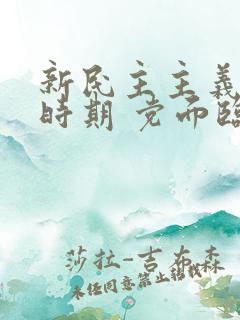 新民主主義
時期 党而臨
莎拉-吉布森
未经同意禁止转载